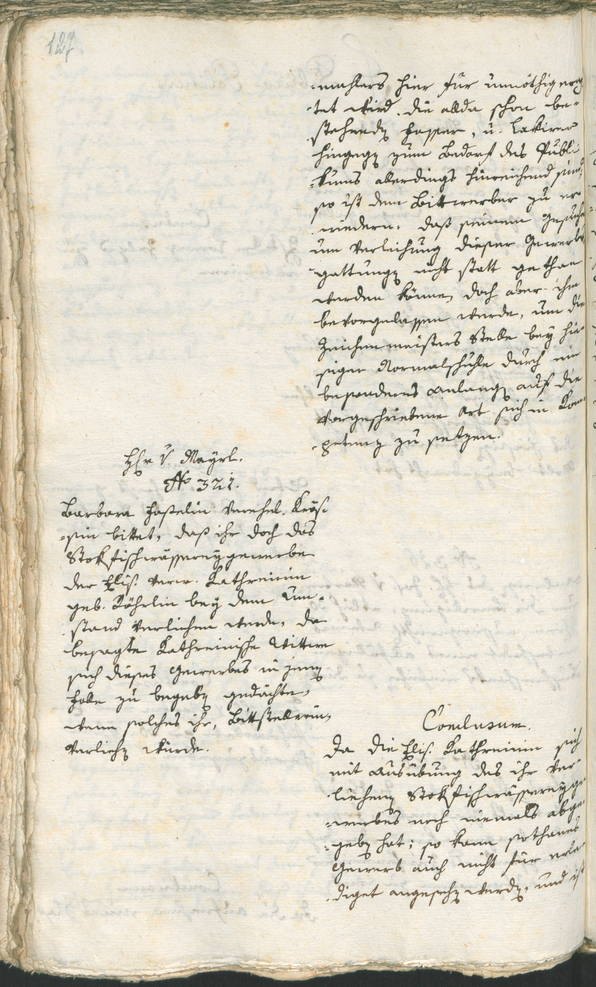 127
-mahlers hier für unnöthig erach
tet wird, die allda schon be-
stehende Fasser, u. Lakirer
hingegen zum Bedarf des Publi-
kums allerdings hinreichend sind,
so ist dem Bittwerber zu er-
wiedern: daß seinem Gesuche
um Verleihung dieser Gewerbs-
gattung nicht statt gethan
werden könne, doch aber ihm
bevorgelassen werde, um die
Zeichenmeisters Stelle bey hie-
siger Normalschule durch ein
besonderes Anlangen auf die
vorgeschriebene Art sich in Kom-
petenz zu setzen.
H v. Mayrl.
No 321.
Barbara verehel.
bittet, daß ihr doch das
Stokfischwässerey gewerbe
der Elis. Kathreinin
geb. bey dem Um-
stand verliehen werde, da
besagte Kathreinische Wittwe
sich dieses Gewerbes in
zu begeben gedächte,
wenn solches ihr, Bittstellerin,
verliehen würde.
Conclusum.
Da die Elis. Kathreinin sich
mit Ausübung des ihr ver-
liehenen Stokfischwässereyge-
werbes noch niemals abge-
geben hat; so kann sothanes
Gewerb auch nicht für erle-
diget angesehen werden, und ist